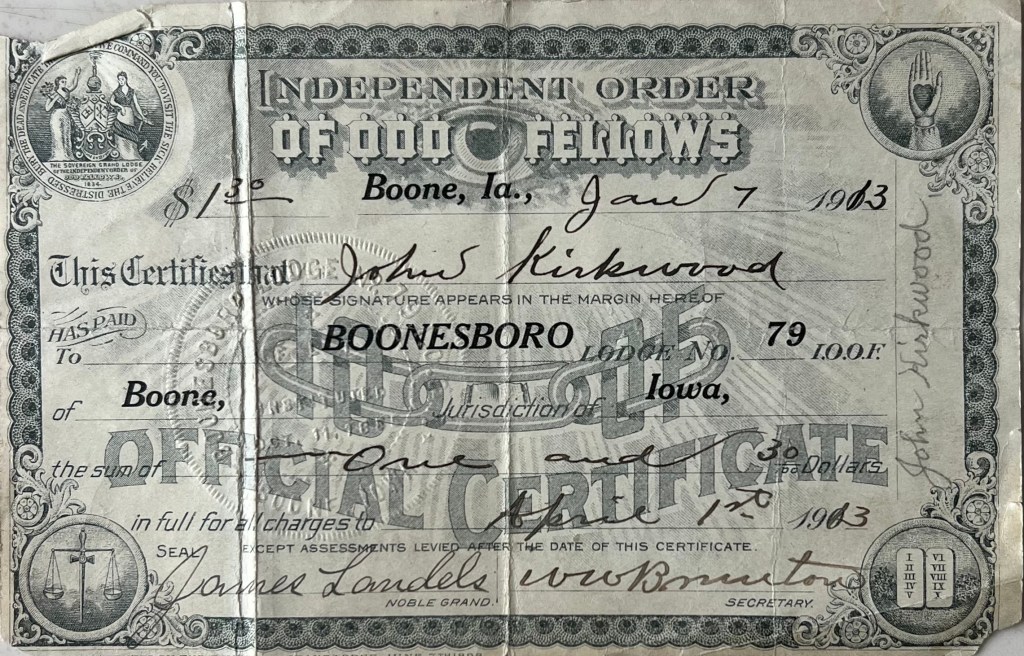 WE COMMAND YOU TO VISIT THE SICK RELIEVE THE DISTRESSED BURY THE DEAD AND EDUCATE
THE SOVEREIGN GRAND LODGE
OF THE INDEPENDENT ORDER OF
ODD FELLOWS
1834
INDEPENDENT ORDER
OF ODD FELLOWS
$1 30 Boone, Ia., Jan 7 1913
This Certifies that John Kirkwood
WHOSE SIGNATURE APPEARS IN THE MARGIN HEREOF
HAS PAID
To BOONESBORO LODGE NO. 79 I.O.O.F.
of Boone, Jurisdiction of Iowa,
the sum of One and 30 Dollars
in full for all charges to April 1st 1913
SEAL EXCEPT ASSESSMENTS LEVIED AFTER THE DATE OF THIS CERTIFICATE.
James Landels
NOBLE GRAND.
SECRETARY.
OFFICIAL CERTIFICATE
John Kirkwood
I VI
II VII
III VIII
IV IX
V X